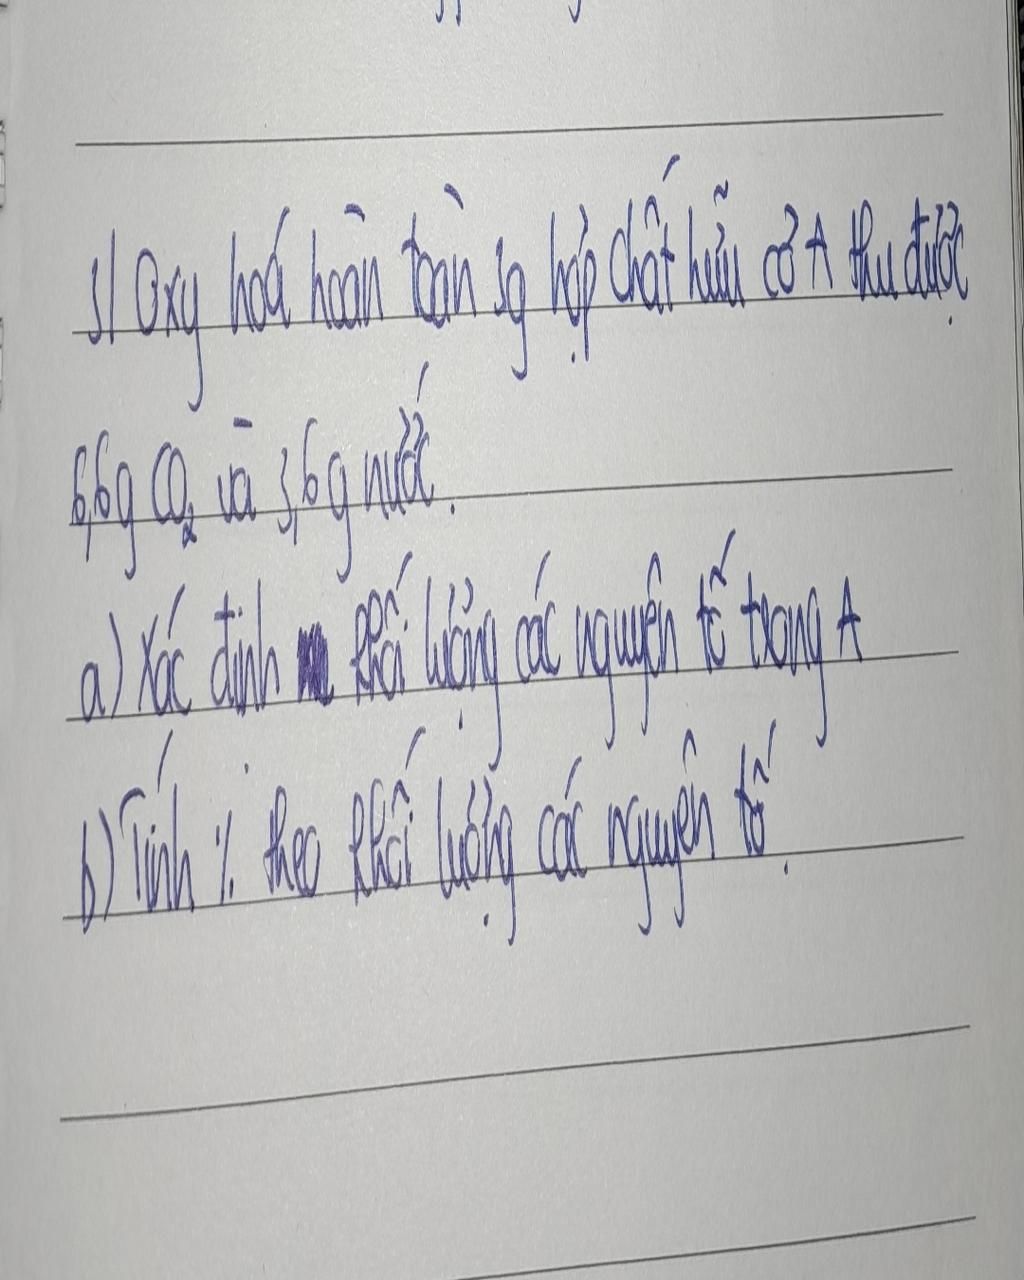 3/ Oxy hoá hoàn toàn 3g hợp chất hữu cơ A thu được
6,6g CO₂ và 3,6g nước.
a) Xác định khối lượng các nguyên tố trong A
b) Tính % theo khối lượng các nguyên tố.